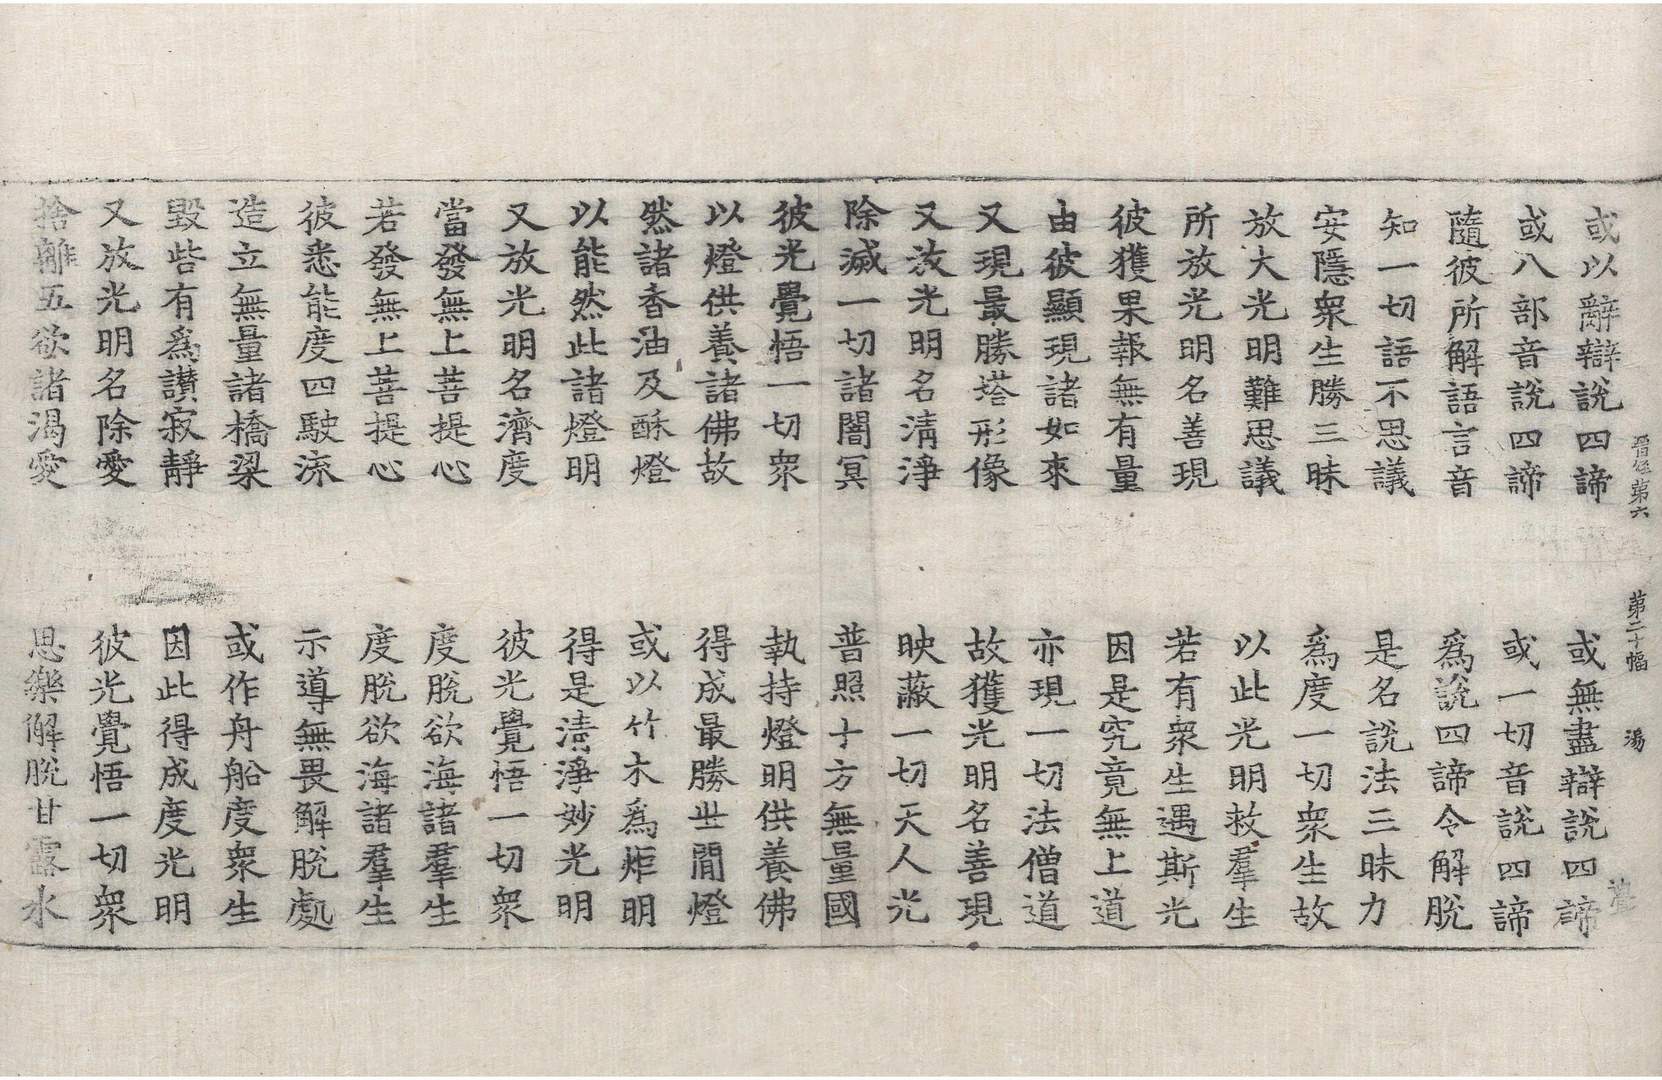 晉經第六　第二十幅　湯
或以辭辯說四諦　或無盡辯說四諦
或八部音說四諦　或一切音說四諦
隨彼所解語言音　爲說四諦令解脫
知一切語不思議　是名說法三昧力
安隱衆生勝三昧　爲度一切衆生故
放大光明難思議　以此光明救羣生
所放光明名善現　若有衆生遇斯光
彼獲果報無有量　因是究竟無上道
由彼顯現諸如來　亦現一切法僧道
又現最勝塔形像　故獲光明名善現
又放光明名清淨　映蔽一切天人光
除滅一切諸闇冥　普照十方無量國
彼光覺悟一切衆　執持燈明供養佛
以燈供養諸佛故　得成最勝世間燈
然諸香油及酥燈　或以竹木爲炬明
以能然此諸燈明　得是清淨妙光明
又放光明名濟度　彼光覺悟一切衆
當發無上菩提心　度脫欲海諸羣生
若發無上菩提心　度脫欲海諸羣生
彼悉能度四駛流　示導無畏解脫處
造立無量諸橋梁　或作舟船度衆生
毀呰有爲讃寂靜　因此得成度光明
又放光明名除愛　彼光覺悟一切衆
捨離五欲諸渴愛　思樂解脫甘露水